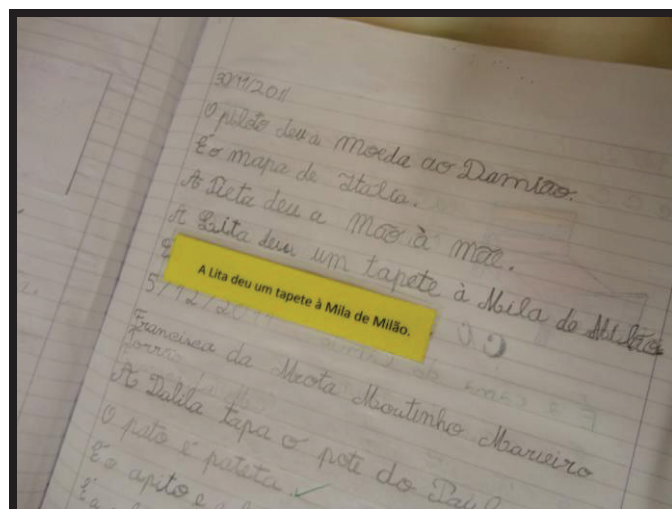 30/11/2011
O piloto deu a moeda ao Damião.
É o mapa de Itália.
A Tieta deu a mão à mãe.
A Lita deu um tapete à Mila de Milão
A Lita deu um tapete à Mila de Milão.
5/12/20
Francisca da Mota Moutinho Marieiro
Torras
A Dalila tapa o pote do Paul
O pato é pateta.
É o apito e a